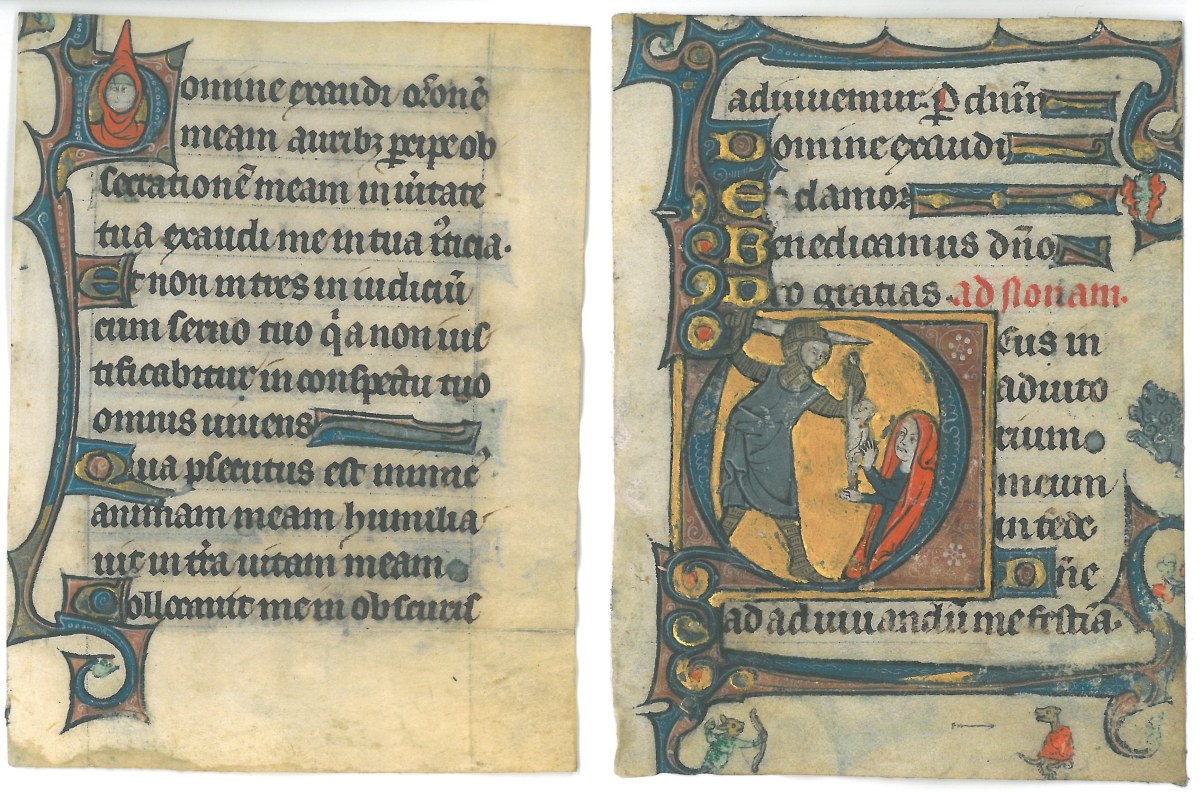 Domine exaudi or̄onē
meam auribz ꝑcipe ob
secrationē meam in ūitate
tua exaudi me in tua ı̄ticia.
Et non intres in iudiciū
cum seruo tuo q̄a non ius
tificabitur in conspectu tuo
omnis uiuens
Quia ꝑsecutus est inimic᾽
animam meam humilia
uit in tr̄a uitam meam
Collocauit me in obscuris
adiuuemur. P̄ dnm̄
Domine exaudi
Et clamor
Benedicamus dn̄o
Deo gratias. ad nonam.
Deus in
adiuto
rium
meum
intede
Dn̄e
ad adiuuandū me festia.